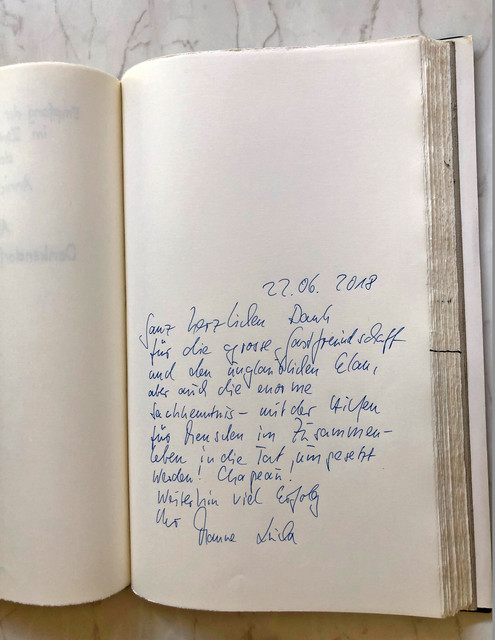 22.06. 2018
Ganz herzlichen Dank
für die grosse Gastfreundschaft
und den unglaublichen Elan,
aber auch die enorme
Sachkenntnis – mit der Hilfen
für Menschen im Zusammen-
leben in die Tat umgesetzt
werden! Chapeau!
Weiterhin viel Erfolg
Ihr